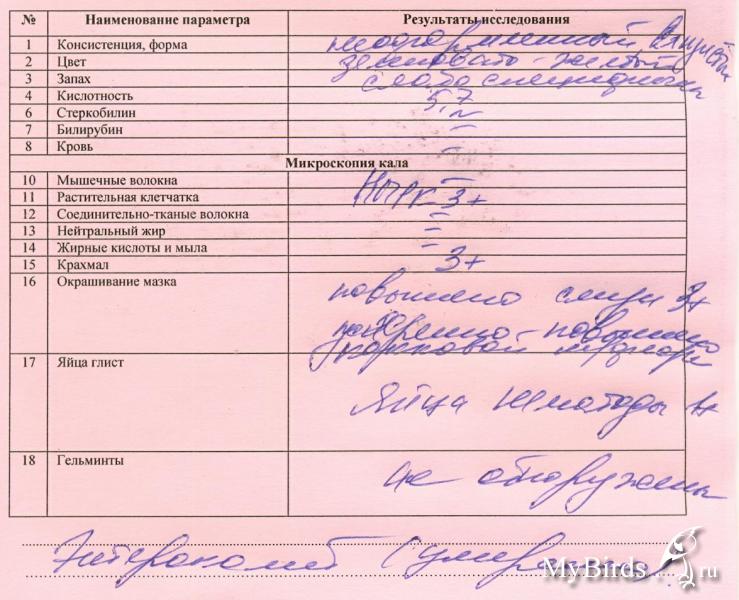 № Наименование параметра Результаты исследования
1 Консистенция, форма неоформленный, вязкий
2 Цвет зеленовато-желтый
3 Запах слабо специфичный
4 Кислотность 5,7
6 Стеркобилин ~
7 Билирубин –
8 Кровь –
Микроскопия кала
10 Мышечные волокна –
11 Растительная клетчатка 3+
12 Соединительно-тканые волокна –
13 Нейтральный жир –
14 Жирные кислоты и мыла –
15 Крахмал 3+
16 Окрашивание мазка повышено слизи 3+
умеренно-повышено
кокковой
17 Яйца глист
Яйца нематоды 1+
18 Гельминты не обнаружены
Энтероколит
MyBirds.ru